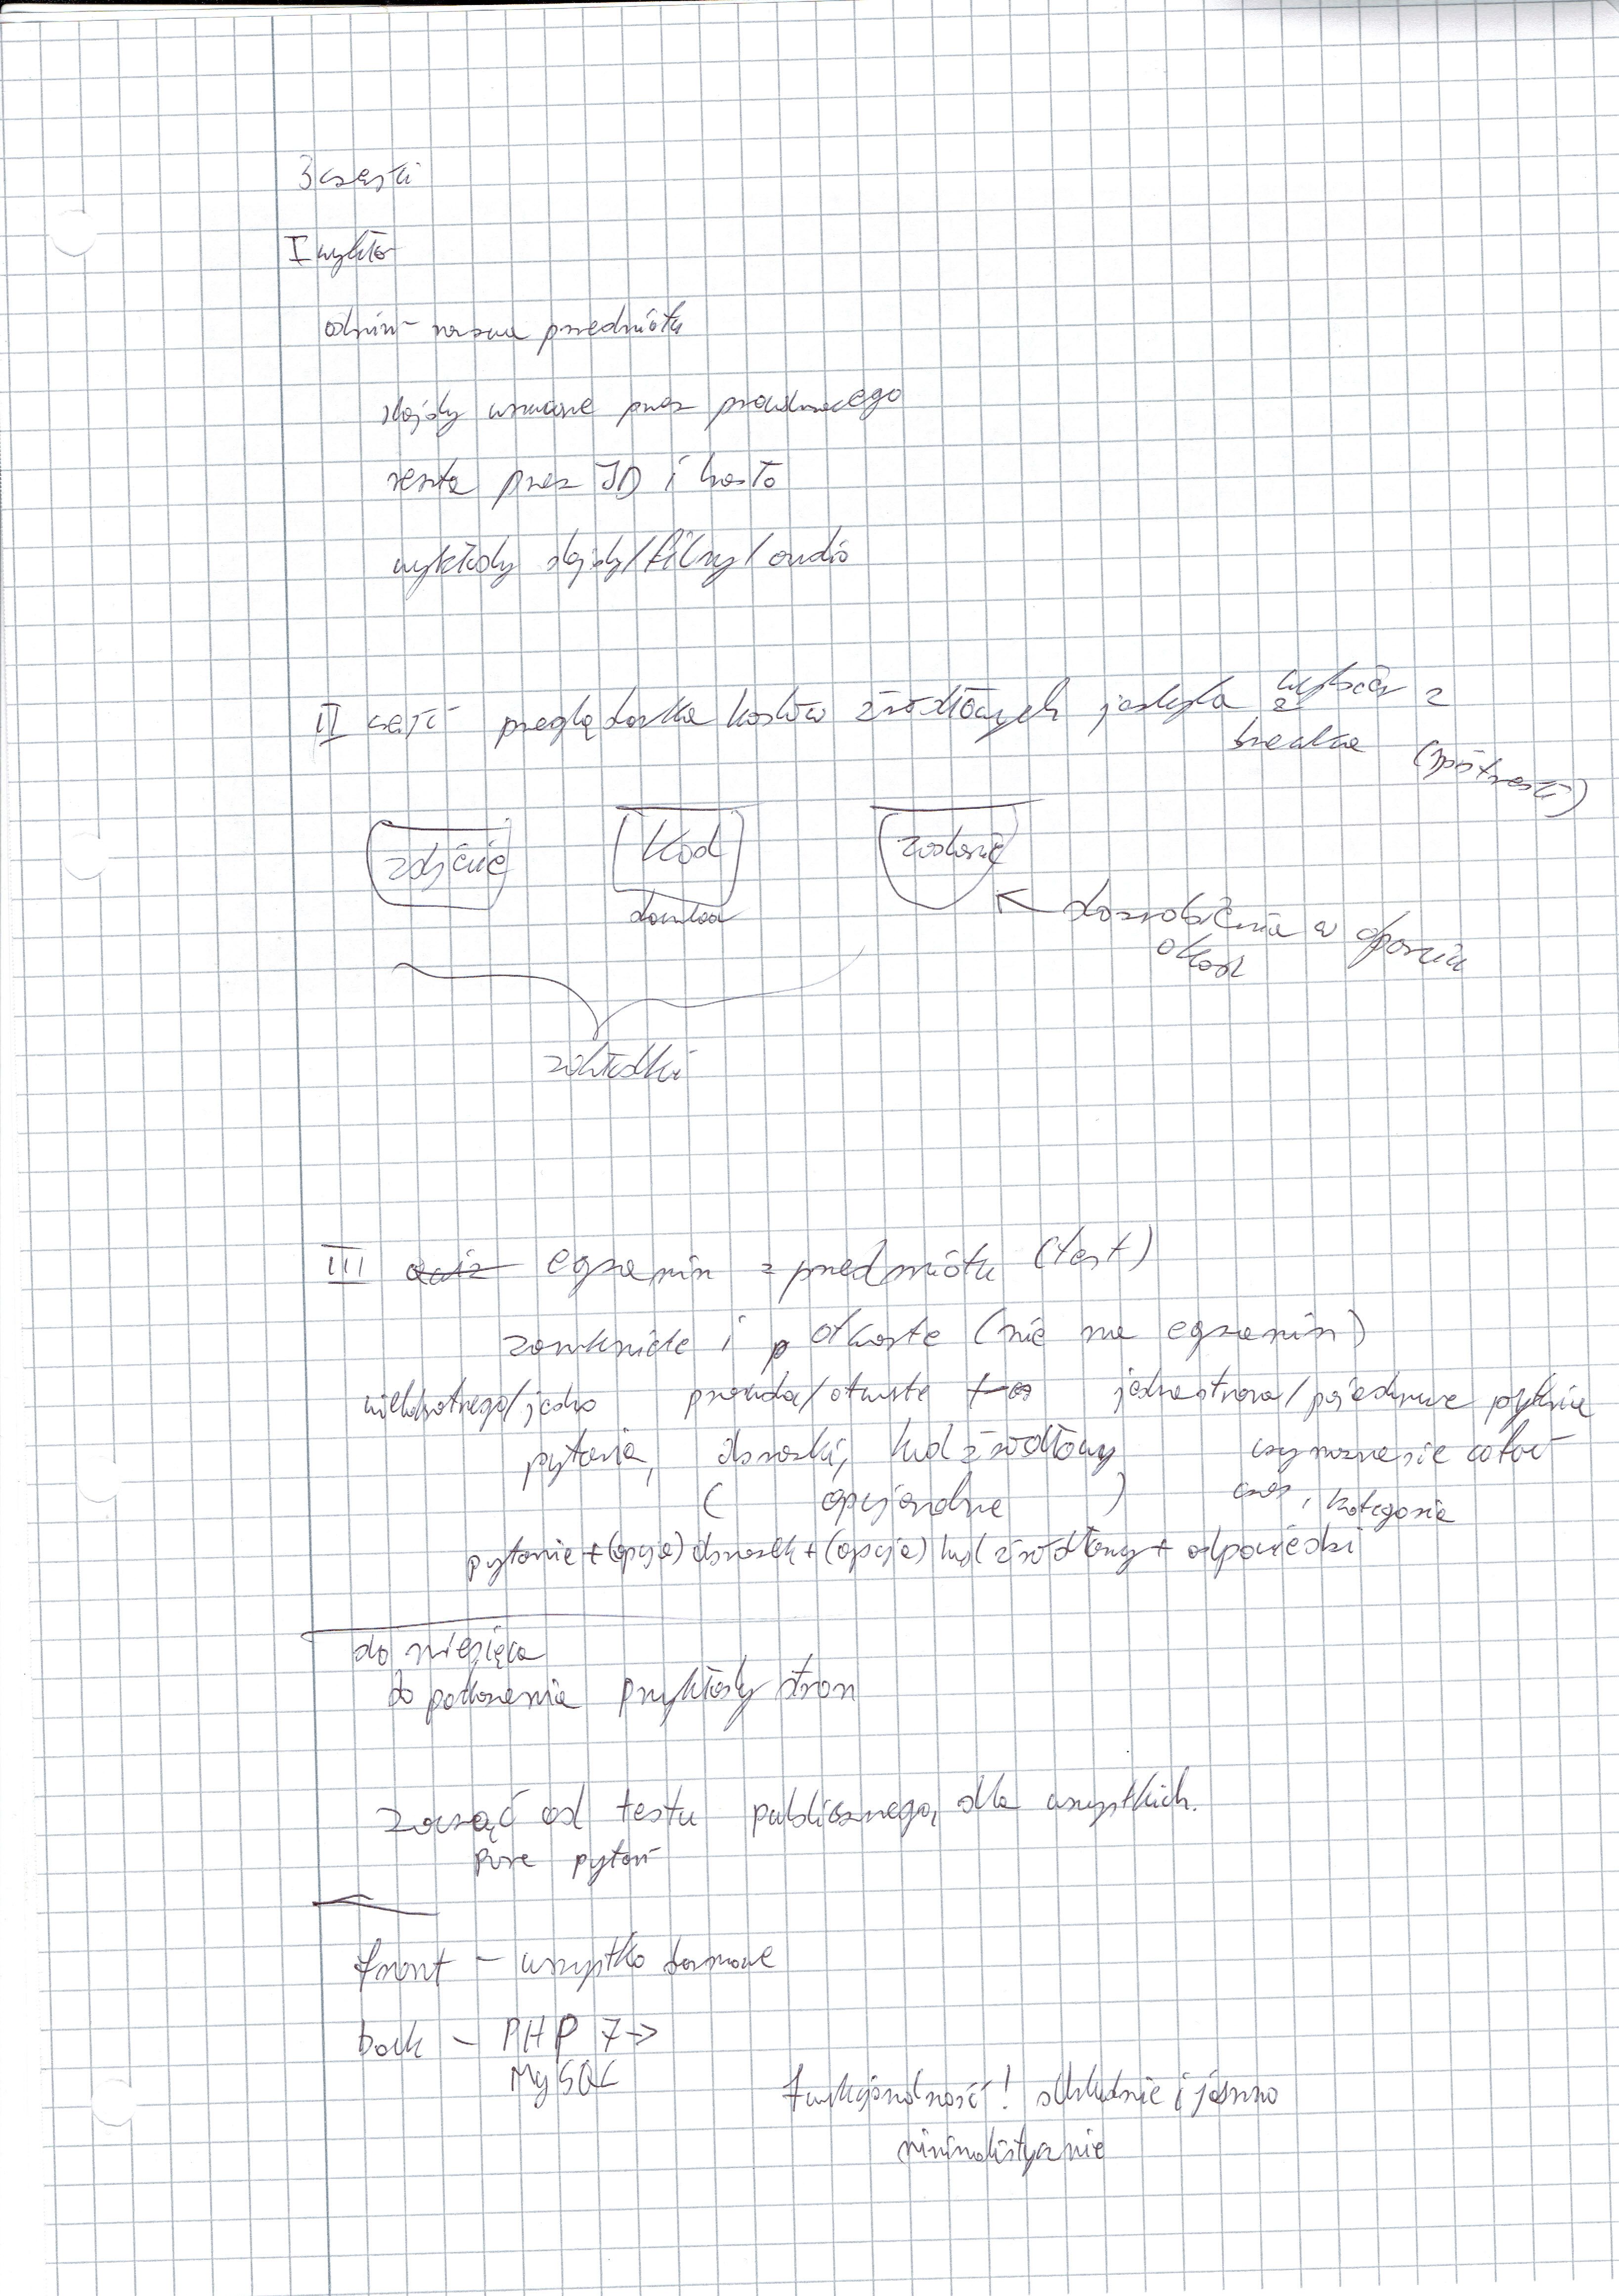 3 części
I wykła
admin - nazwa przedmiotu
slajdy wrzucane przez prowadzącego
reszta przez ID i hasło
wykłady slajdy/filmy/audio
II część przeglądarka kodów źródłowych języka wybór z
zdjęcie
Kod
zadanie
do zrobienia w oparciu
o kod
zakładki
III quiz egzamin z przedmiotu (test)
zamknięte i p otwarte (nie na egzamin)
wielokrotnego/jedno prawda/otwarte jedna strona/pojedyncze pytanie
pytania, obrazki, kod źródłowy czy można się cofać
( opcjonalne ) czas, kategoria
pytanie + (opcja) obrazek + (opcja) kod źródłowy + odpowiedzi
do miesiąca
do pokazania przykłady stron
zacząć od testu publicznego, dla wszystkich.
parę pytań
front - wszystko darmowe
back - PHP 7 ->
MySQL
funkcjonalność! schludnie i jasno
minimalistycznie